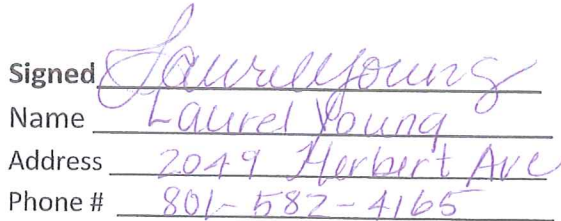 Signed Laurel Young
Name Laurel Young
Address 2049 Herbert Ave
Phone # 801-582-4165